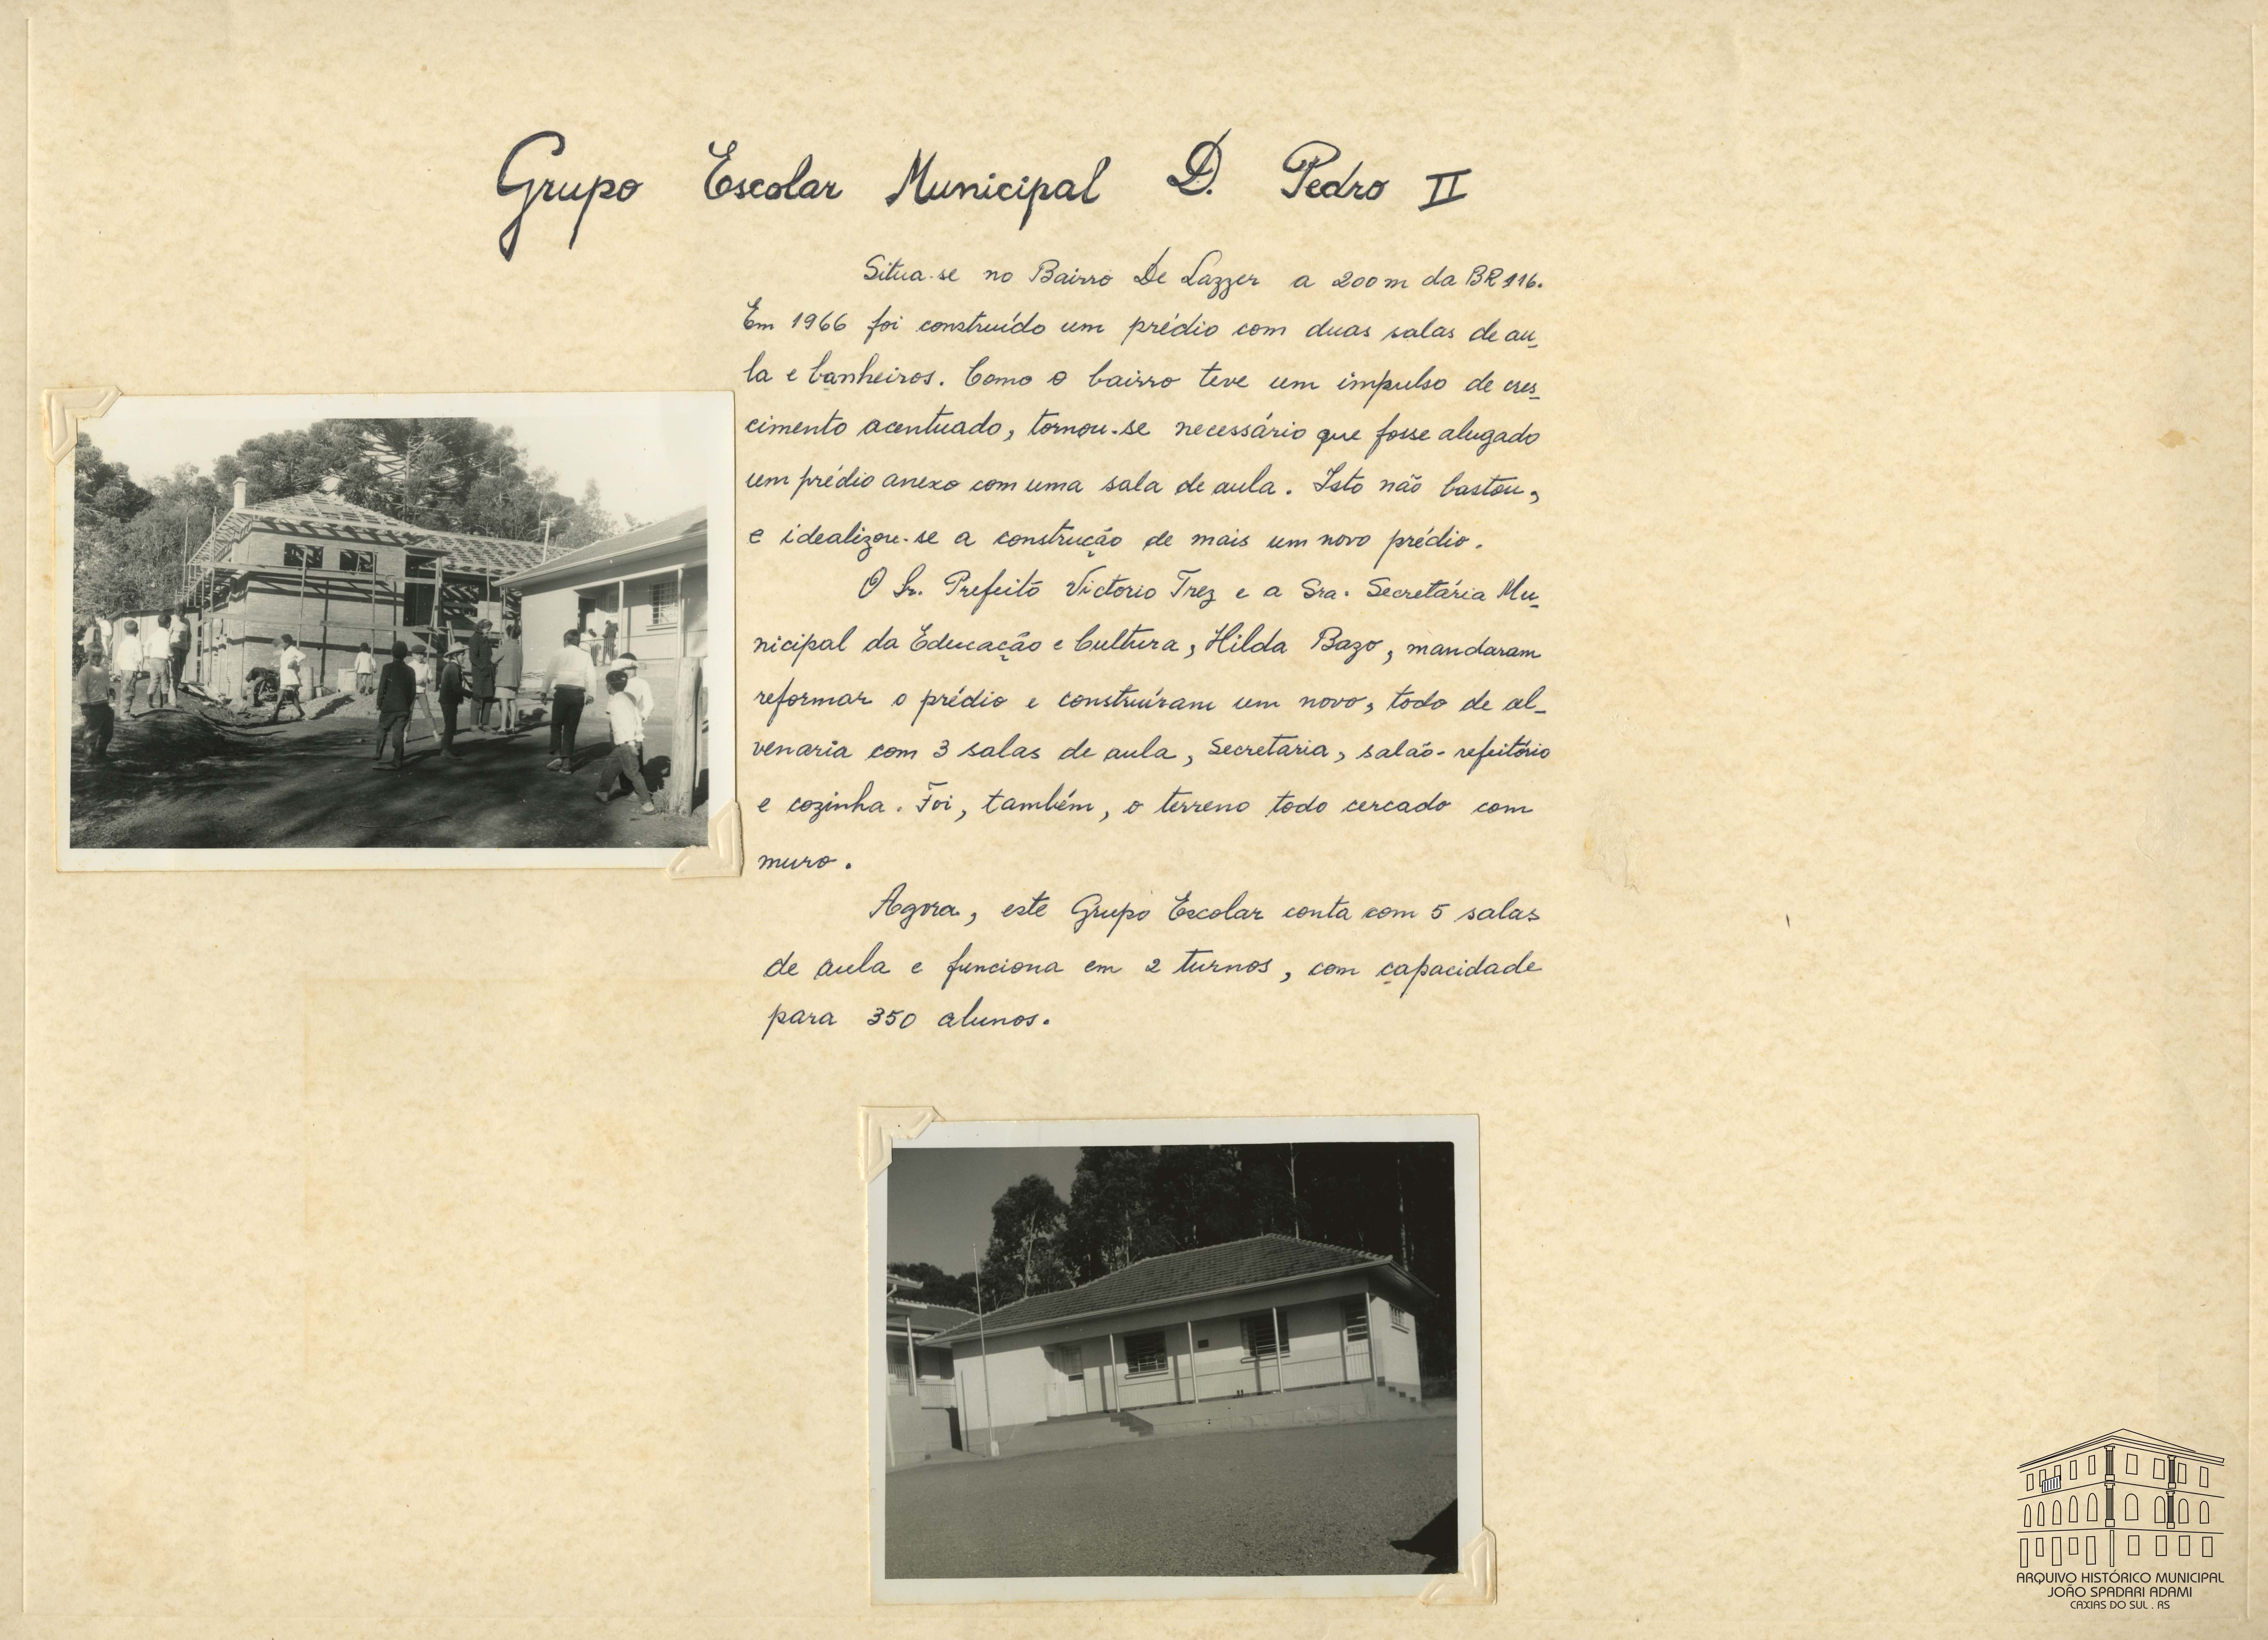 Grupo Escolar Municipal D. Pedro II
Situa-se no Bairro De Lazzer a 200m da BR 116.
Em 1966 foi construído um prédio com duas salas de au-
la e banheiros. Como o bairro teve um impulso de cres-
cimento acentuado, tornou-se necessário que fosse alugado
um prédio anexo com uma sala de aula. Isto não bastou,
e idealizou-se a construção de mais um novo prédio.
O Sr. Prefeito Victorio Trez e a Sra. Secretária Mu-
nicipal da Educação e Cultura, Hilda Bazo, mandaram
reformar o prédio e construíram um novo, todo de al-
venaria com 3 salas de aula, Secretaria, salão-refeitório
e cozinha. Foi, também, o terreno todo cercado com
muro.
Agora, este Grupo Escolar conta com 5 salas
de aula e funciona em 2 turnos, com capacidade
para 350 alunos.
ARQUIVO HISTÓRICO MUNICIPAL
JOÃO SPADARI ADAMI
CAXIAS DO SUL . RS